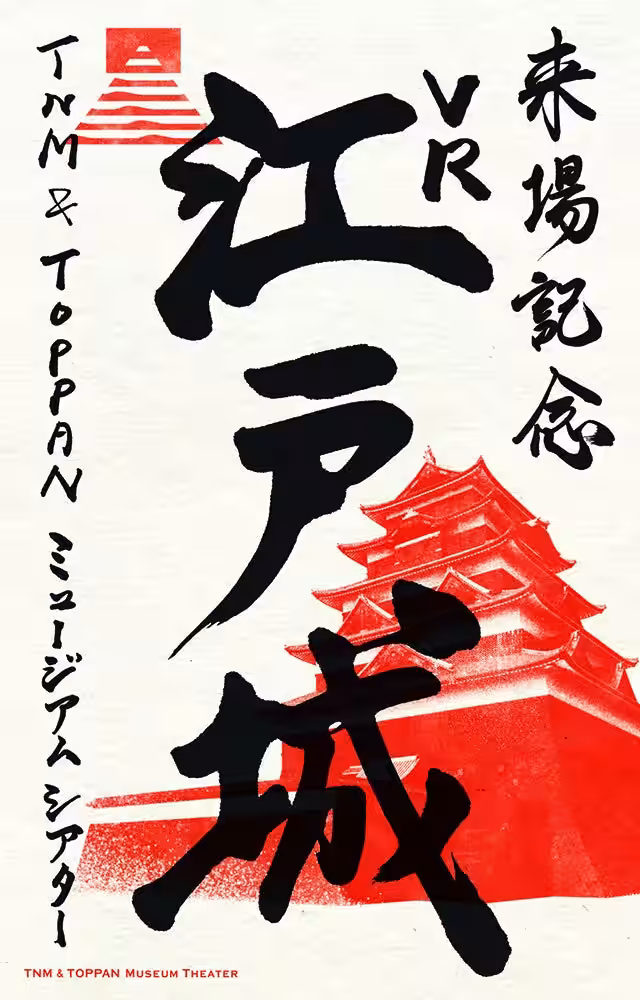 来場記念
VR
江戸城
TNM & TOPPAN ミュージアム シアター
TNM & TOPPAN MUSEUM THEATER